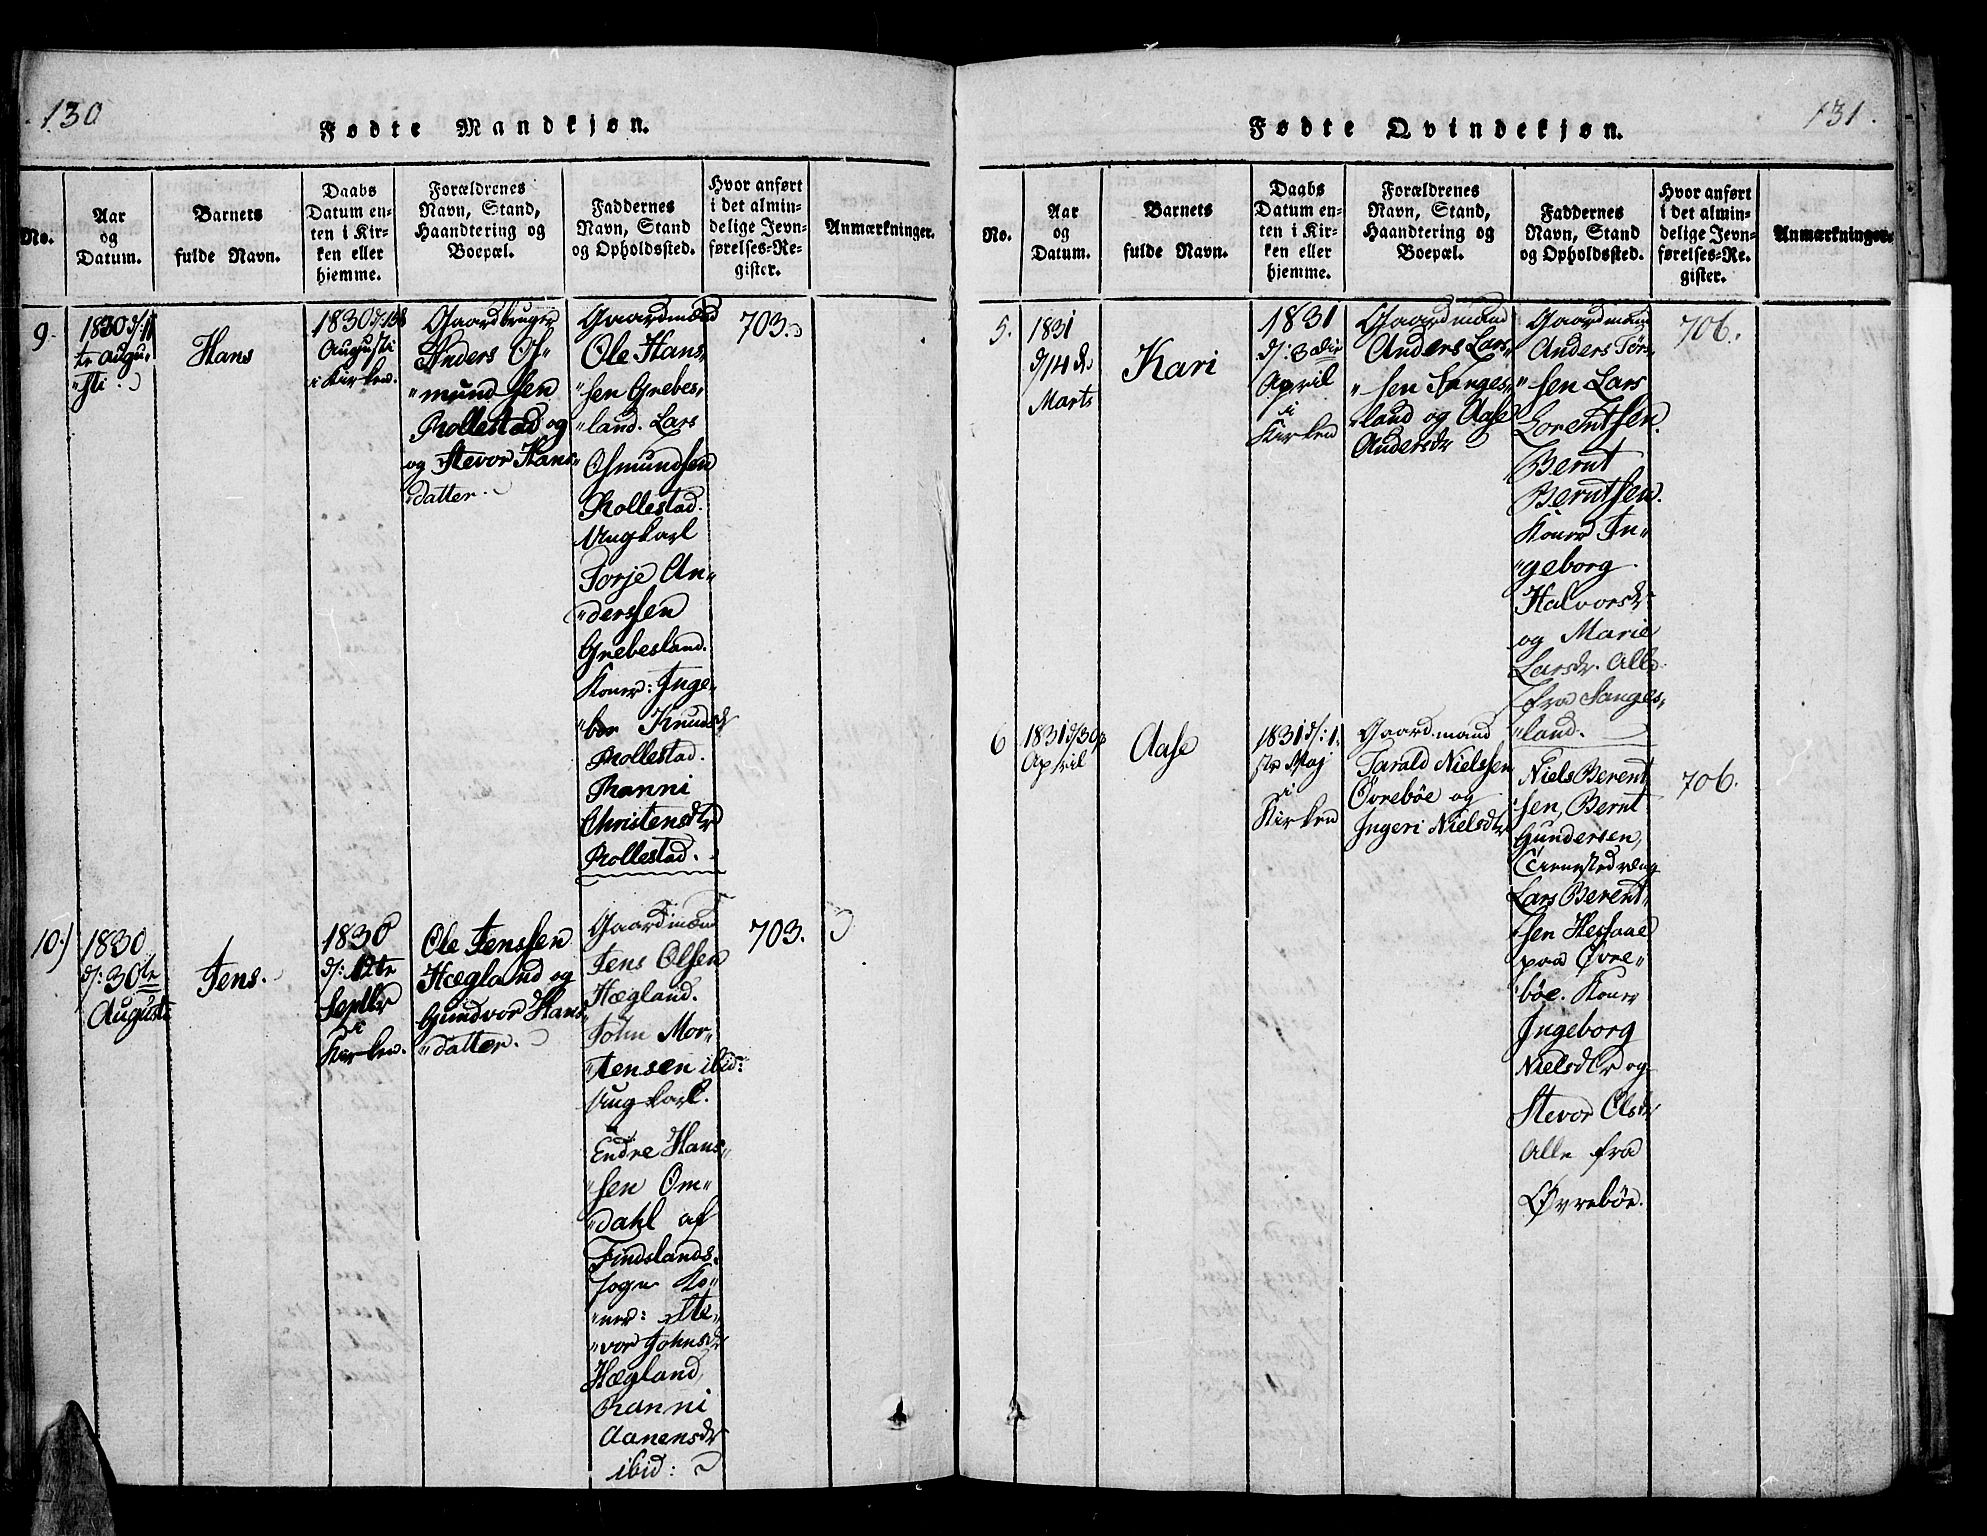 130
Fødte Mandkjøn.
No.
Aar
og
Datum.
Barnets
fulde Navn.
Daabs
Datum en-
ten i Kir-
ken eller
hjemme.
Forældrenes
Navn, Stand,
Haandtering og
Boepæl.
Faddernes
Navn, Stand
og Opholdssted.
Hvor anført
i det almin-
delige Jevn-
førelses-Re-
gister.
Anmærkninger.
9.
1830 d: 11
te Augu-
sti.
Hans
1830 d:
Augusti
i Kirken.
Gaardbruger
Anders Os-
mundsen
Rollestad og
og Stevor Hans-
datter.
Gaardmænd
Ole Hans-
sen Grebes-
land. Lars
Osmundsen
Rollestad.
Ungkarl
Torje An-
derssen
Grebesland.
Koner: Inge-
bor Knudsdr
Rollestad.
Ranni
Christensdtr
Rollestad.
703.
10.)
1830
d: 30te
Augusti
Jens.
1830
d: 12te
Septbr
i
Kirken.
Ole Jenssen
Hægland og
Gundvor Hans-
datter.
Gaardmænd
Jens Olsen
Hægland.
John Mor-
tensen ibid:
Ungkarl.
Endre Hans-
sen Om-
dahl af
Findslands
Sogn Ko-
ner: Ste-
vor Johnsdr
Hægland,
Ranni
Aanensdr
ibid:
703.
131.
Fødte Qvindekjøn.
No.
Aar
og
Datum.
Barnets
fulde Navn.
Daabs
Datum en-
ten i Kir-
ken eller
hjemme.
Forældrenes
Navn, Stand,
Haandtering og
Boepæl.
Faddernes
Navn, Stand
og Opholdssted.
Hvor anført
i det almin-
delige Jevn-
førelses-Re-
gister.
Anmærkninger.
5.
1831
d/14 de
Marts
Kari
1831
d: 3die
April
i
Kirken
Gaardmand
Anders Lars-
sen Sanges-
land og Aase
Andersdr
Gaardmænd
Anders Tørs-
sen Lars
Lorentsen.
Bernt
Berntsen.
Koner In-
geborg
Halvorsdr
og Marie
Larsdr. Alle
fra Sanges-
land.
706.
6
1831 d/30
April
Aase
1831 d: 1-
ste Maj
i
Kirken
Gaardmand
Tarald Nielssen
Øvrebøe og
Ingeri Nielsdtr
Niels Berent
sen, Bernt
Gundersen,
Lars Berent-
sen Hessaae
paa Øvre-
bøe. Koner
Ingeborg
Nielsdtr og
Stevor Olsdr
Alle fra
Øvrebøe.
706.